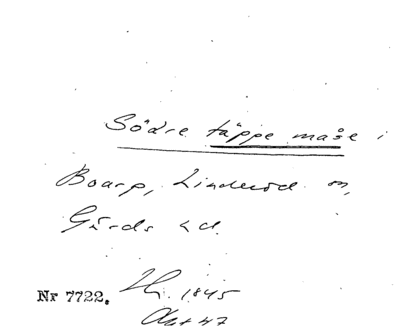 Södre täppe maše i
Boarp, Linderöd sn,
Gärds hd.
Nr 7722. Hj. 1845
Akt 47